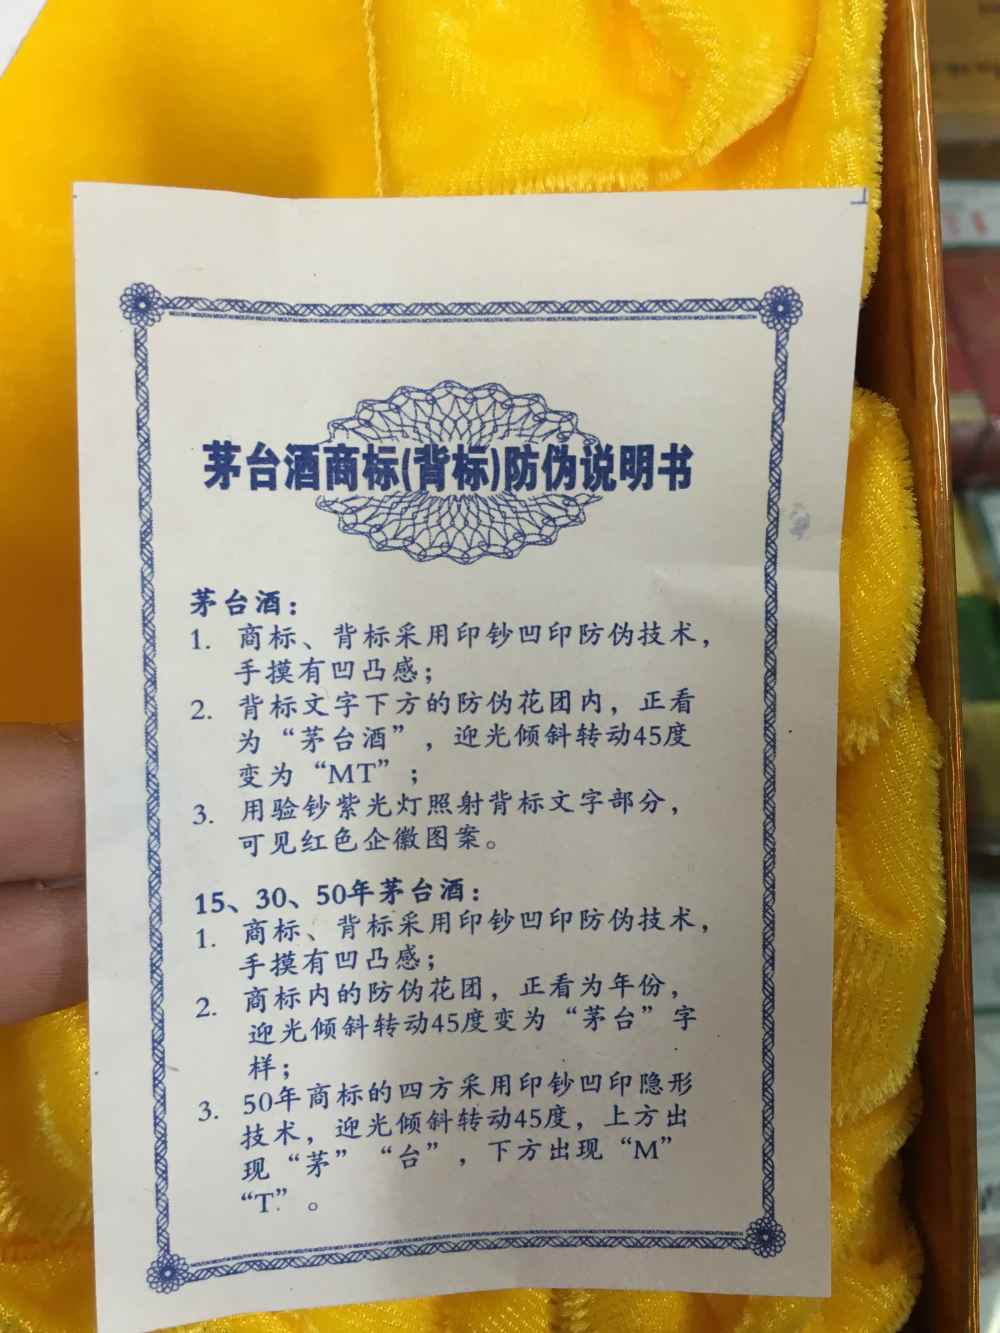 茅台酒商标(背标)防伪说明书
茅台酒：
1. 商标、背标采用印钞凹印防伪技术，
手摸有凹凸感；
2. 背标文字下方的防伪花团内，正看
为“茅台酒”，迎光倾斜转动45度
变为“MT”；
3. 用验钞紫光灯照射背标文字部分，
可见红色企徽图案。
15、30、50年茅台酒：
1. 商标、背标采用印钞凹印防伪技术，
手摸有凹凸感；
2. 商标内的防伪花团，正看为年份，
迎光倾斜转动45度变为“茅台”字
样；
3. 50年商标的四方采用印钞凹印隐形
技术，迎光倾斜转动45度，上方出
现“茅”“台”，下方出现“M”
“T”。